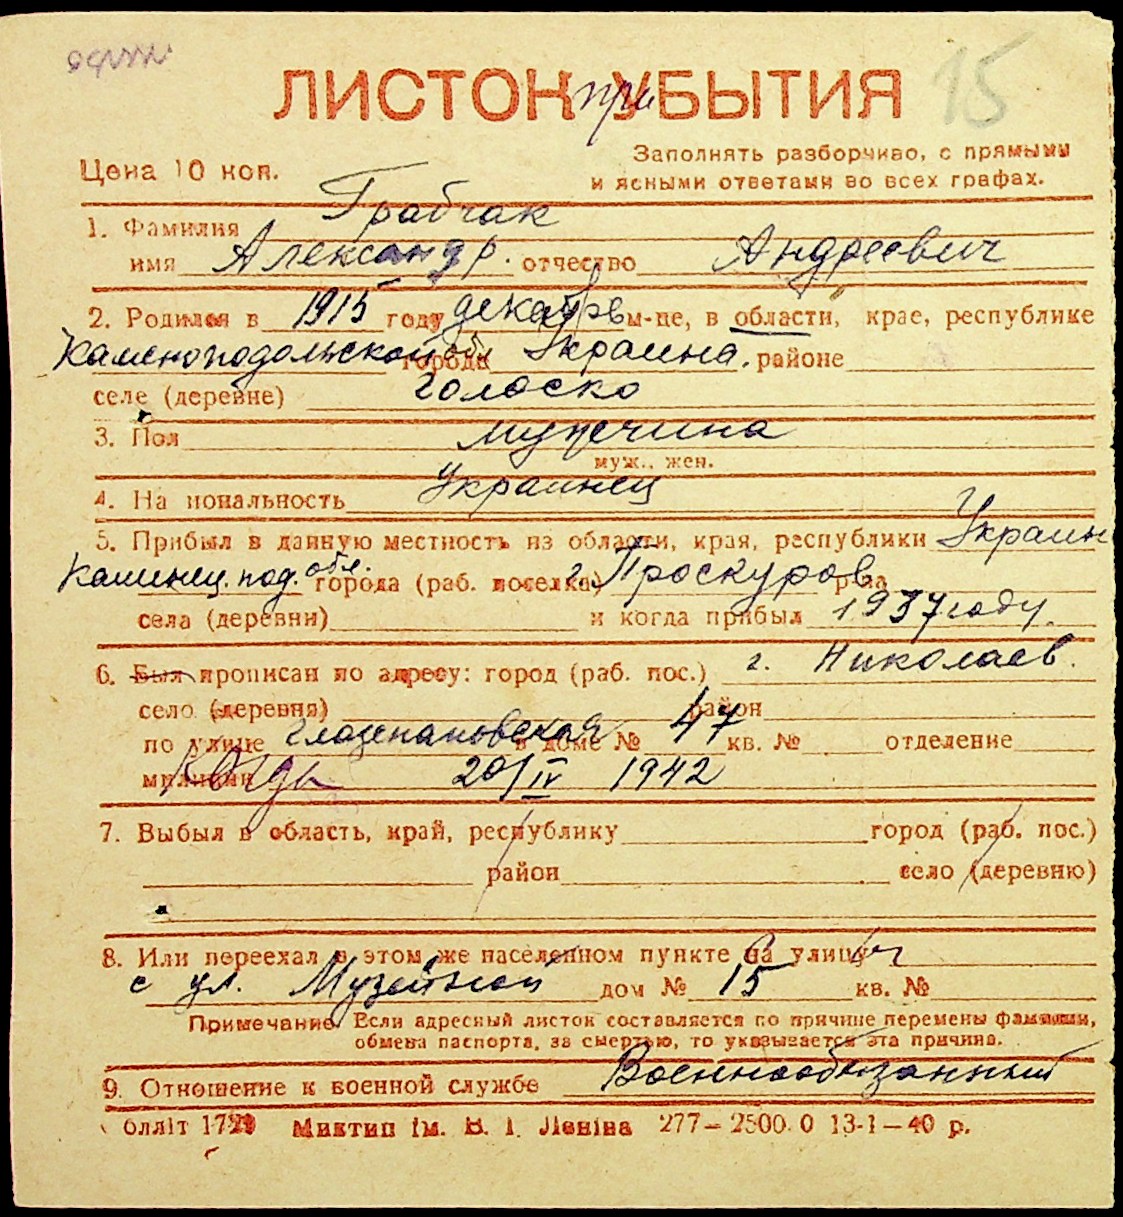 15
ЛИСТОК при УБЫТИЯ
Цена 10 коп.
Заполнять разборчиво, с прямыми
и ясными ответами во всех графах.
1. Фамилия Грабчак
имя Александр. отчество Андреевич
2. Родился в 1915 году декабрь м-це, в области, крае, республике
Каменоподольской обл города Украина. районе
селе (деревне) Голоско
3. Пол мужчина
муж., жен.
4. Национальность Украинец
5. Прибыл в данную местность из области, края, республики Украин
Каминец. под. обл. города (раб. поселка) г. Проскуров р-на
села (деревни) и когда прибыл 1937 году.
6. Был прописан по адресу: город (раб. пос.) г. Николаев.
село (деревня) район
по улице Глазенаповская в доме № 47 кв. № отделение
милиции Когда 20/IV 1942
7. Выбыл в область, край, республику город (раб. пос.)
район село (деревню)
8. Или переехал в этом же населенном пункте на улицу
с ул. Музейной дом № 15 кв. №
Примечание. Если адресный листок составляется по причине перемены фамилии,
обмена паспорта, за смертью, то указывается эта причина.
9. Отношение к военной службе Военнообязанный
Облліт 1729 Миктип ім. В. І. Леніна 277—2500 0 13-1—40 р.